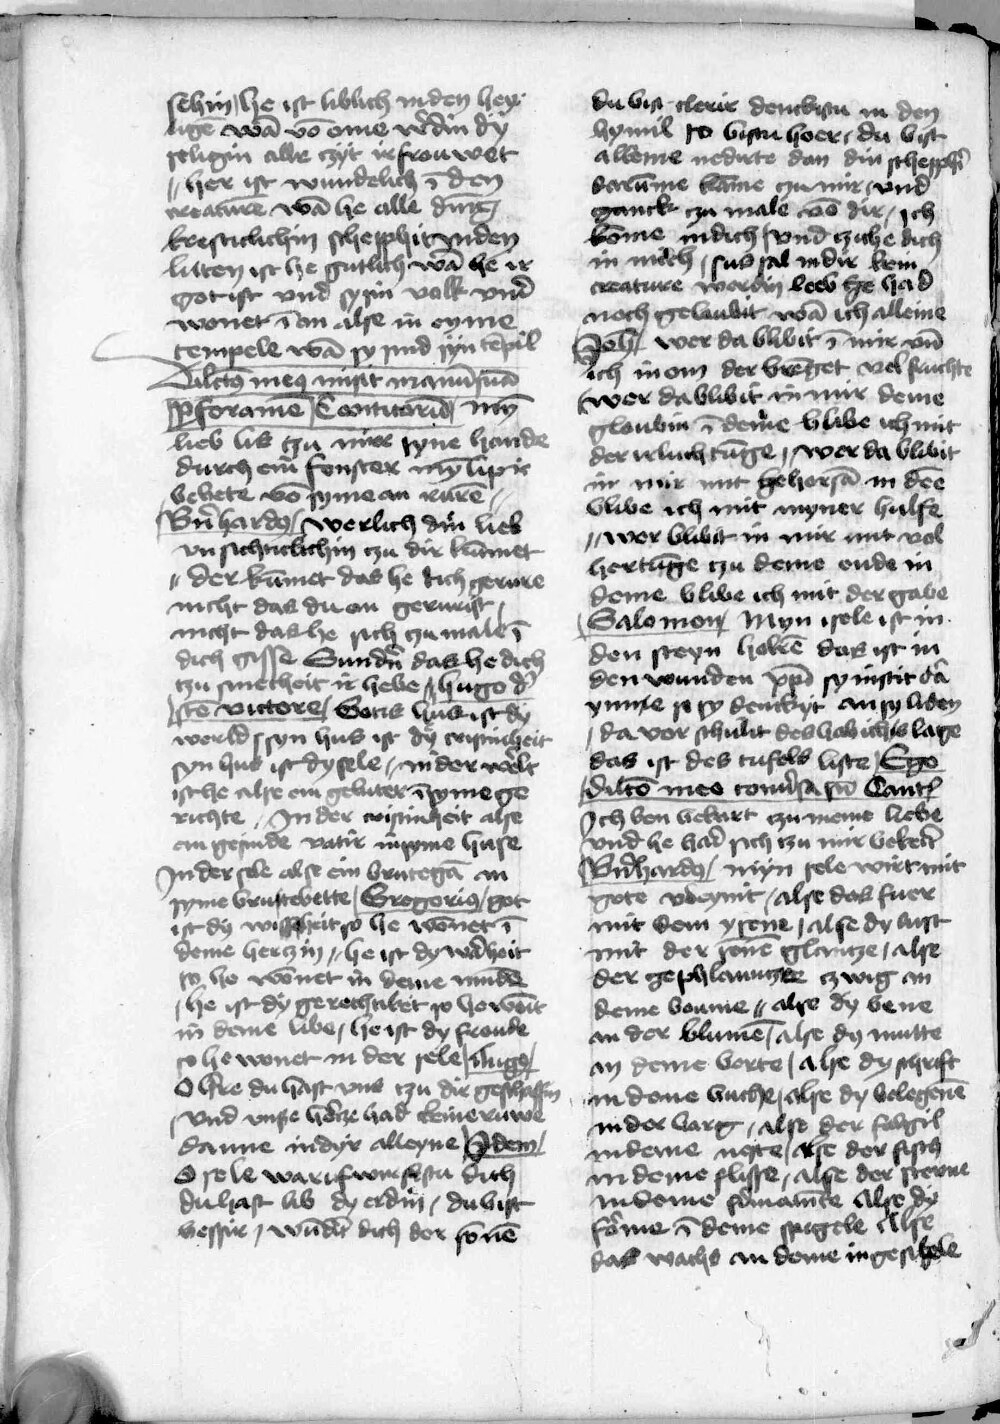 sehin / he ist liblich in den hey
ligē wā vō eme w'din dy
seligin alle czyt irfrouwet
// her ist wundelich ī den
creature wā he alle ding
kresticlichin schepphit in den
luten ist he gutlich wā he ir
got ist und sy sin volk und
wonet ī en alse in eyme
tempele wā sy sind syn tēpil
Dilct9 me9 misit manū suā
p foramē Canticorū myn
lieb lis czu mir syne hande
durch ein fenster myn lip ir
bebete vō syme an rurē //
Bn̄hard9 / werlich din lieb
un sichticlichin czu dir kūmet
// der kūmet das he dich gerure
nicht das du en gerurist /
nicht das he sich czu male ī
dich gisse Sundn̄ das he dich
czu smecheit ir hebe // hugo d'
sc̄o victore / Gotis hus ist dy
werld / syn hus ist dy cristinheit
syn hus ist dy sele // in der welt
ist he alse ein gebiter ī syme ge
richte // In der cristinheit alse
ein gesinde vatir in syme huse
In der sele alse ein brutegā in
syme brutebette / Gregori9 / got
ist dy wissheit so he wonet ī
deme herczin // he ist dy warheit
so he wonet in deme munde
/ he ist dy gerechtikeit so he wōit
in deme libe / he ist dy freude
so he wonet in der sele / Augo /
O h're du hast uns czu dir geschaffin
/ und unse hercze had keine ruwe
danne in dyr alleyne / Idem /
O sele war uf wirfistu dich
du hast lib dy erdin / du bist
bessir / wūdt dich der sōnē
du bist clerir denckistu in den
hymil so bistu hoer / du bist
alleine nedirte dan din schepph'
darūme kāme czu mir / und
ganck czu male vō dir / ich
kōme in dich / und czihe dich
in mich / sus sal in dir kein
creature werdin leeb he had
noch gelaubit wā ich alleine
Joh / wer da blibit ī mir un̄
ich in em der brēget vel fruchte
/ wer da blibit in mir deme
gloubin ī deme blibe ich mit
der irluchtūge // wer da blibit
in mir mit gehorsā in dē
blibe ich mit myner hulfe
// wer blibit in mir mit vol
hertūge czu deme ende in
deme blibe ich mit der gabe
/ Salomon / Myn sele ist in
den steyn holrē das ist in
den wunden xp̄i sy nistit dā
ynne so sy denckyt an sy liden
/ da vor schulit des hab ichis lage
das ist des tufels liste / Ego
Dilcō meo conv'sa sū Cantl
Ich ben bekart czu meine liebe
und he had sich czu mir bekert
Bn̄hard9 / myn sele wirt mit
gote voreynit / alse das fuer
mit dem ysene / alse dy luft
mit der sonē glantze / alse
der gephlantzte czwig an
deme boume // alse dy bene
an der blumē / alse dy mutte
an deme borte / alse dy schrift
in deme buche / alse dy belegenē
in der barg / alse der fogil
in deme neste / alse der fisch
in deme flisse / alse der sterne
in deme firmamēte Alse dy
forme ī deme spigele Alse
das wachs an deme ingesigele